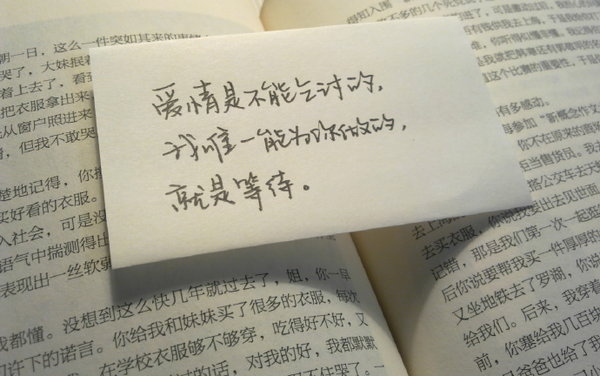 爱情是不能乞讨的，
我唯一能为你做的，
就是等待。
朝一日，这么一件突如其来的事情
哭了，大妹抿着
着上去了，看到
把衣服拿出来
从窗户照进来
，但我不敢哭
楚地记得，你
买好看的衣服。
入社会，可是没
语气中揣测得出
表现出一丝软弱
我都懂。没想到这么快几年就过去了，姐，你一年
们许下的诺言。你给我和妹妹买了很多的衣服，每次
，在学校衣服够不够穿，吃得好不好，又
的话，对我的好，我都默默
得知入围
有多感动。
再参加“新概念作文
你不在原来的商
后当售货员。我去
路公交车去天
去上海
去买衣服，你说要出去见世面
记错，那是我们第一次一起逛
后你说要帮我买一件厚厚的
又坐地铁去了罗湖，你说
给我们。后来，我穿着
前，你塞给我几百块
爸爸也给了我